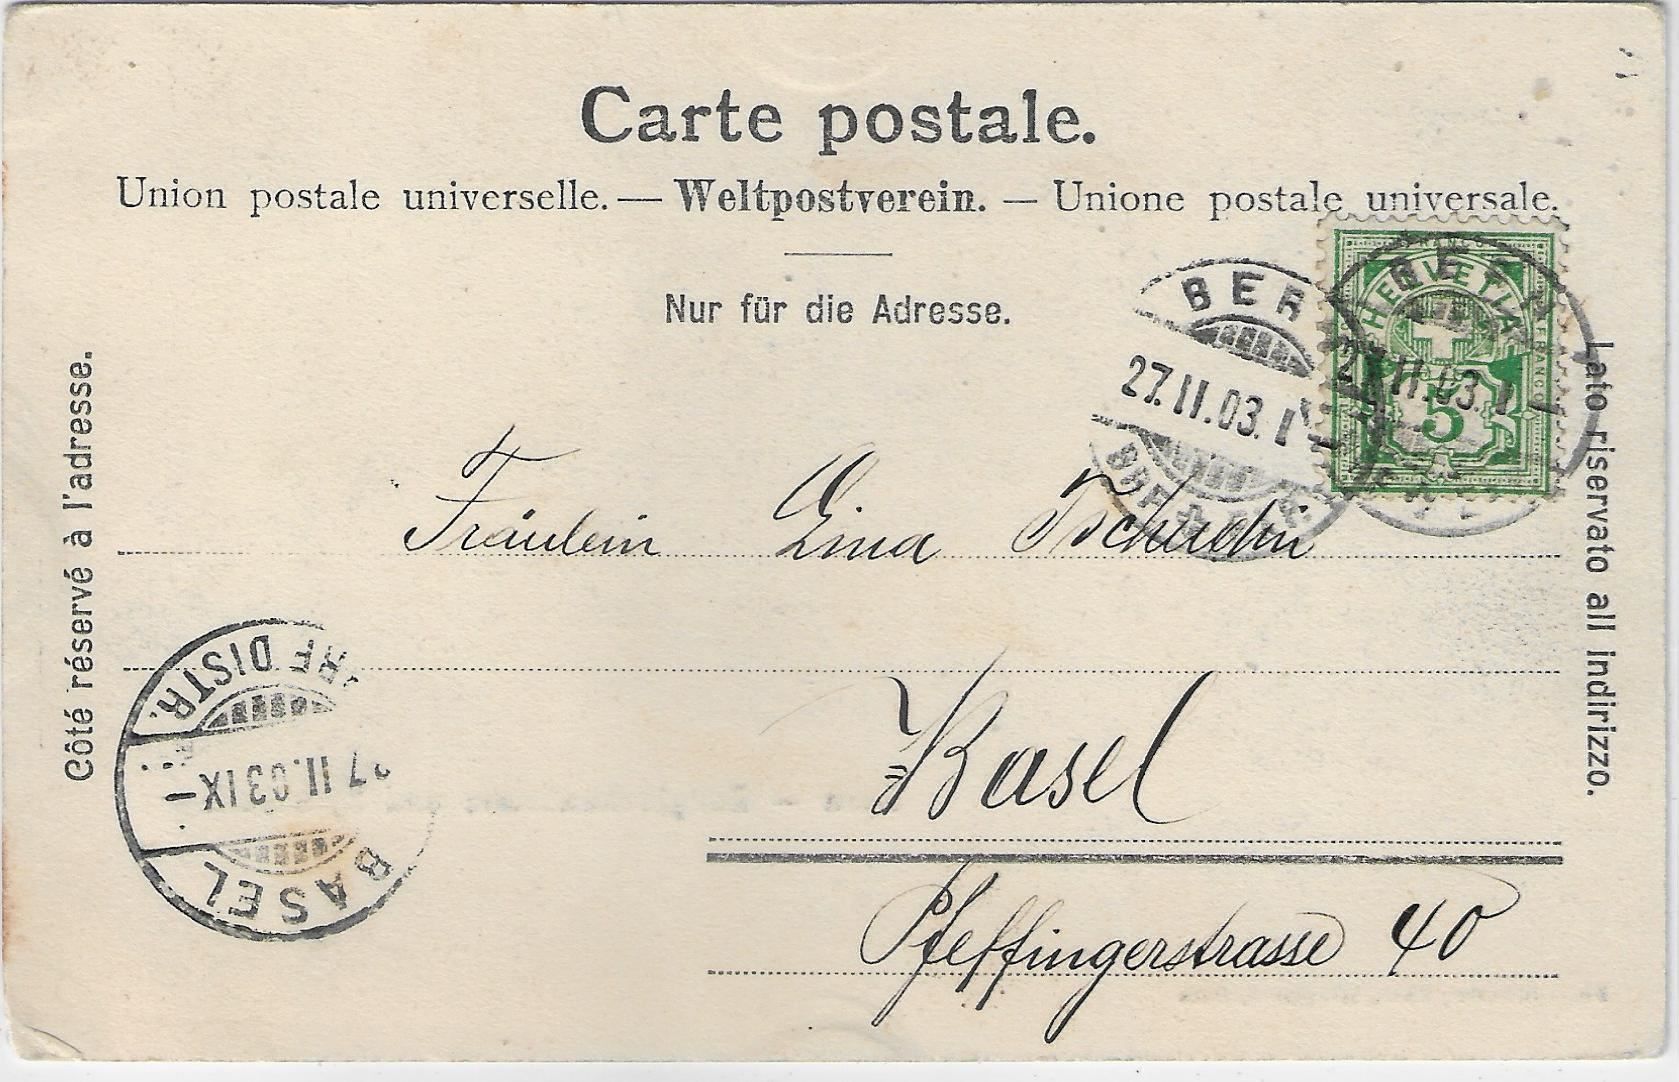 Carte postale.
Union postale universelle. — Weltpostverein. — Unione postale universale.
Nur für die Adresse.
Côté réservé à l'adresse.
Lato riservato all indirizzo.
BERN
27.II.03. I
BRF
HELVETIA
FRANCO
5
BERN
27.II.03. I
Fräulein Lina Tschudin
Basel
Pfeffingerstrasse 40
BRF DISTR.
27 II.03 IX—
BASEL